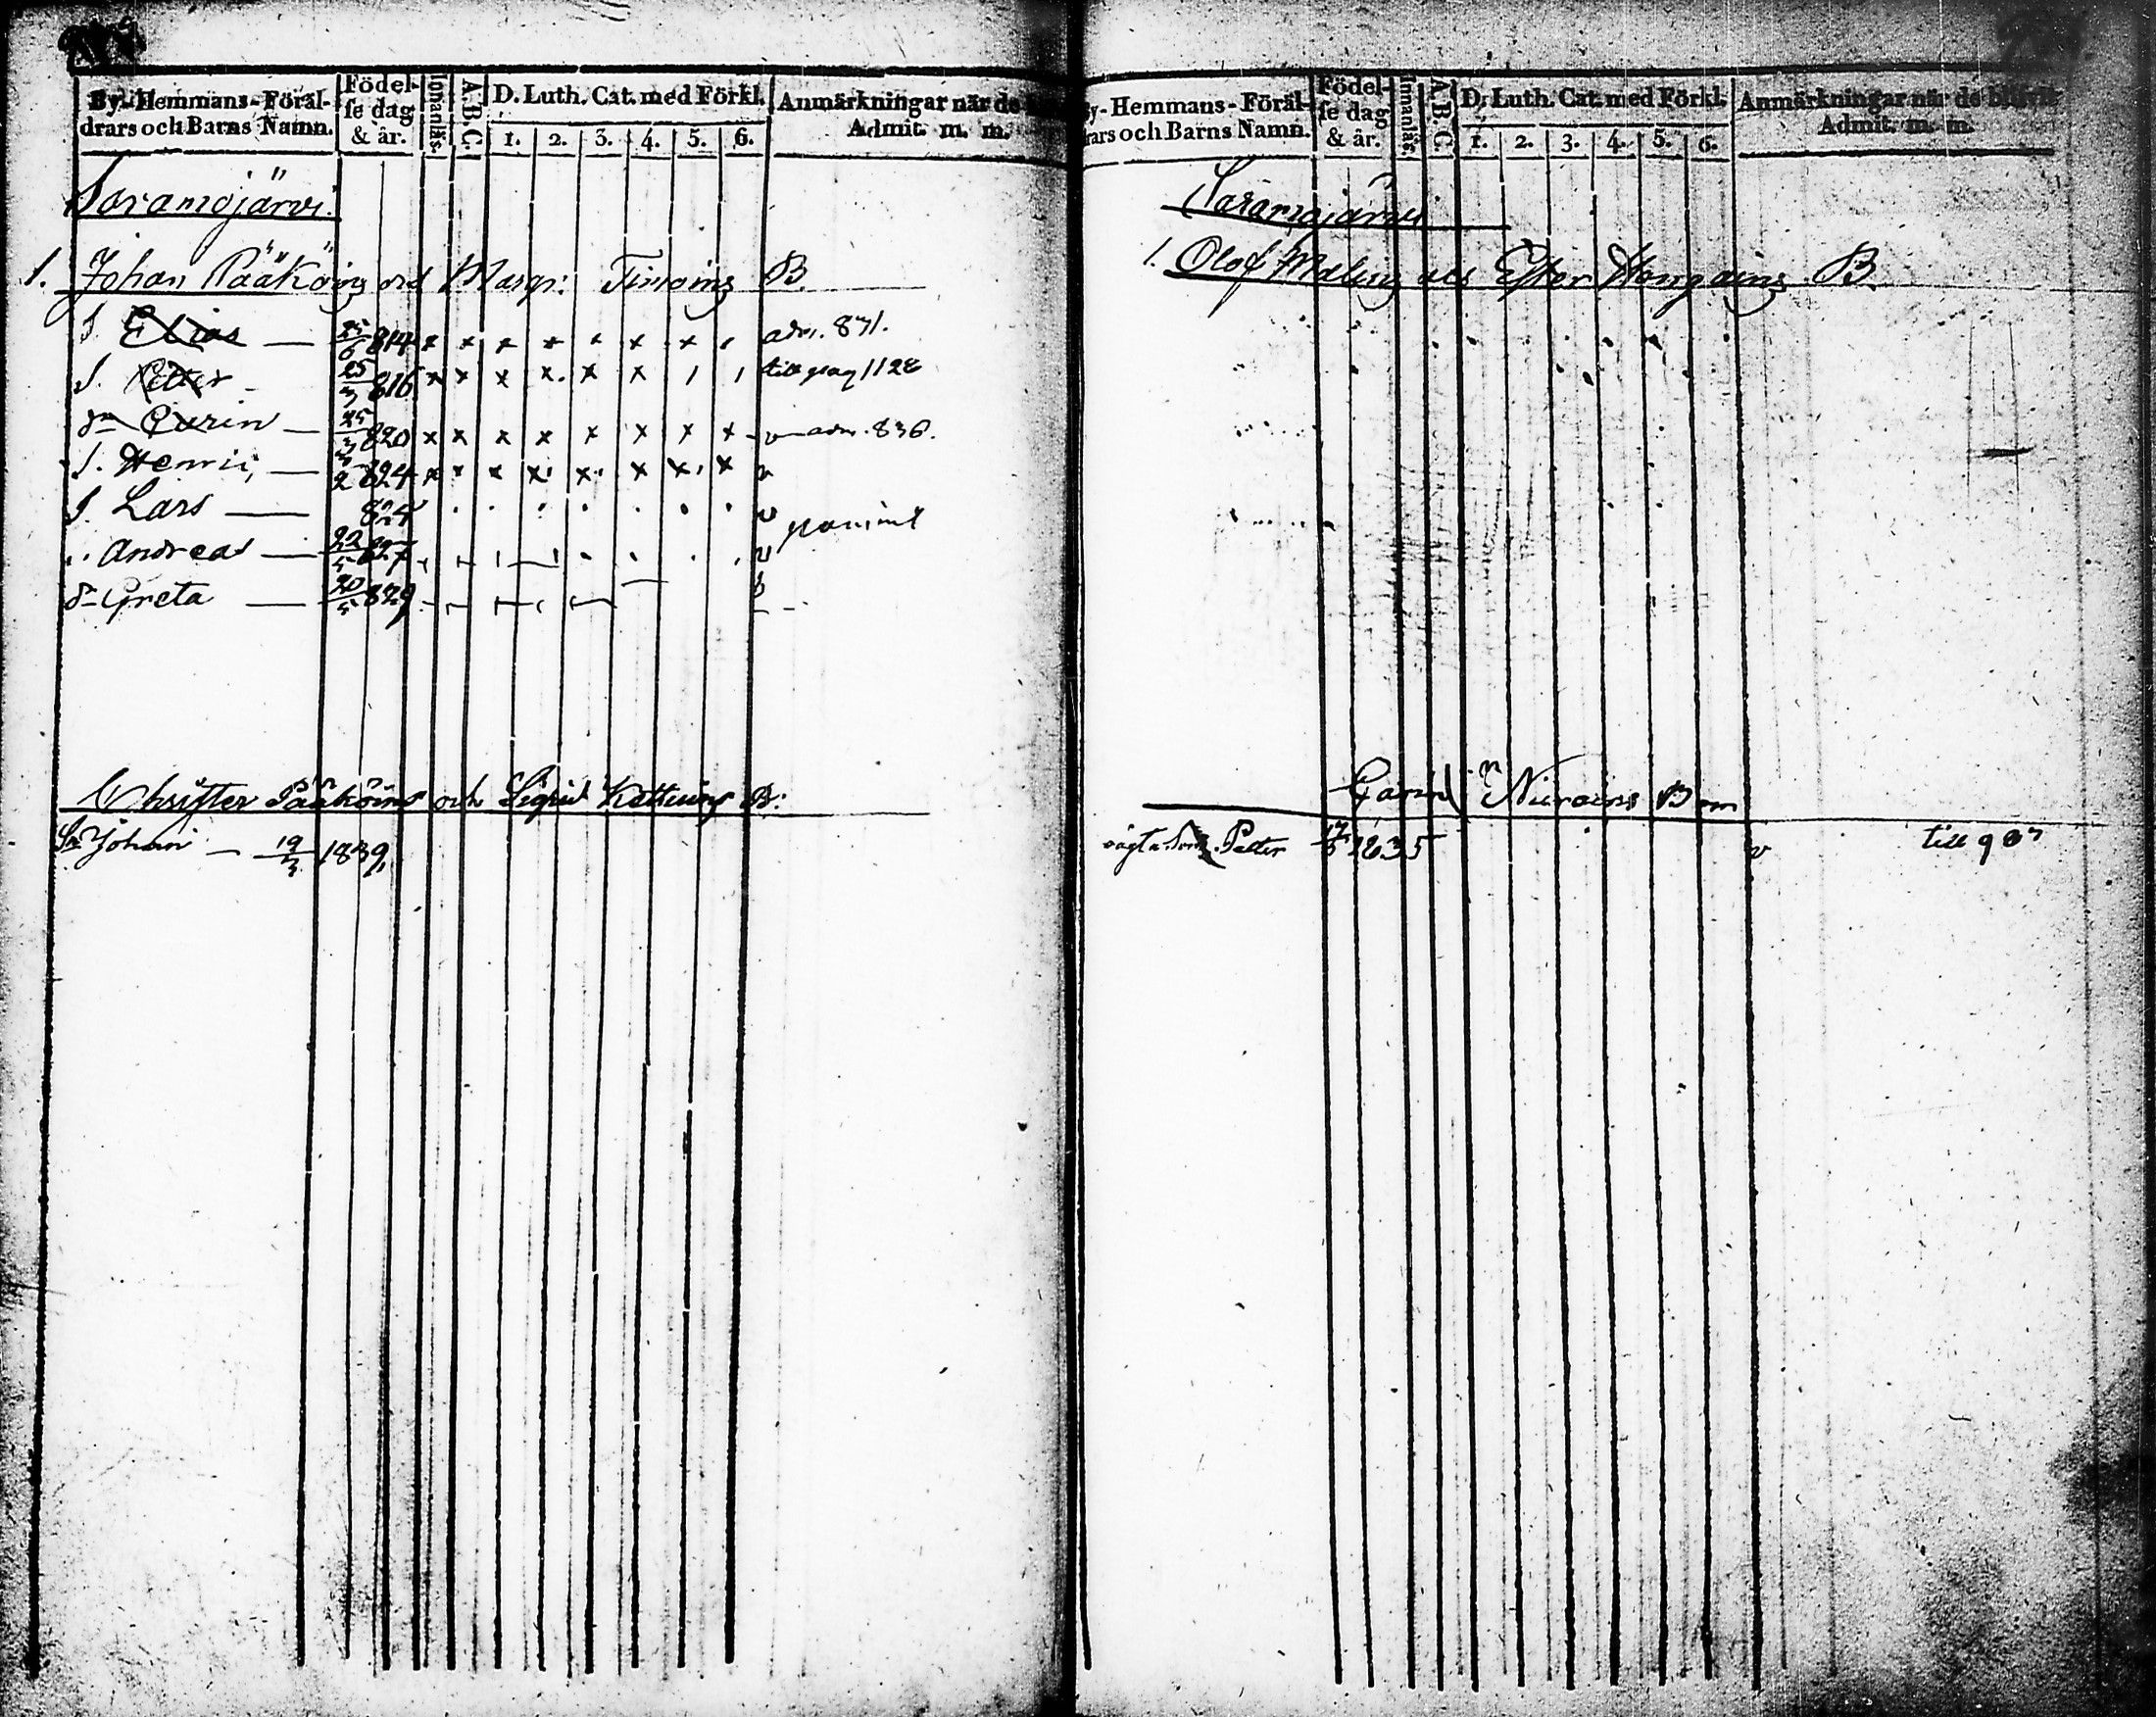 By-Hemmans-Föräl-
drars och Barns Namn.
Födel-
se dag
& år.
Innanläs.
A.B.C.
D. Luth. Cat. med Förkl.
1. 2. 3. 4. 5. 6.
Anmärkningar när de
Admit. m. m.
Saramojärvi
1. Johan Pääköinz och Margr: Timoinz B.
S. Elias — 25/6 814 x x x x x x x adm. 831.
S. Petter 25/3 816 x x x x x x till pag 1128
Dr Carin — 25/3 820 x x x x x x x x v adm. 836.
S. Henric — 2 824 x x x x x x x x v
S. Lars — 825 v
Andreas — 22/5 827 v
Dr Greta — 20/5 829
Christer Pääköins och Sigrid Kettuins B:
Sn Johan — 19/3 1839
By-Hemmans-Föräl-
drars och Barns Namn.
Födel-
se dag
& år.
Innanläs.
A.B.C.
D. Luth. Cat. med Förkl.
1. 2. 3. 4. 5. 6.
Anmärkningar när de blifvit
Admit. m. m.
Saramojärvi
1. Olof och Ester B.
Carin Niiroins Barn
oägta Son Petter 1835 v till 987